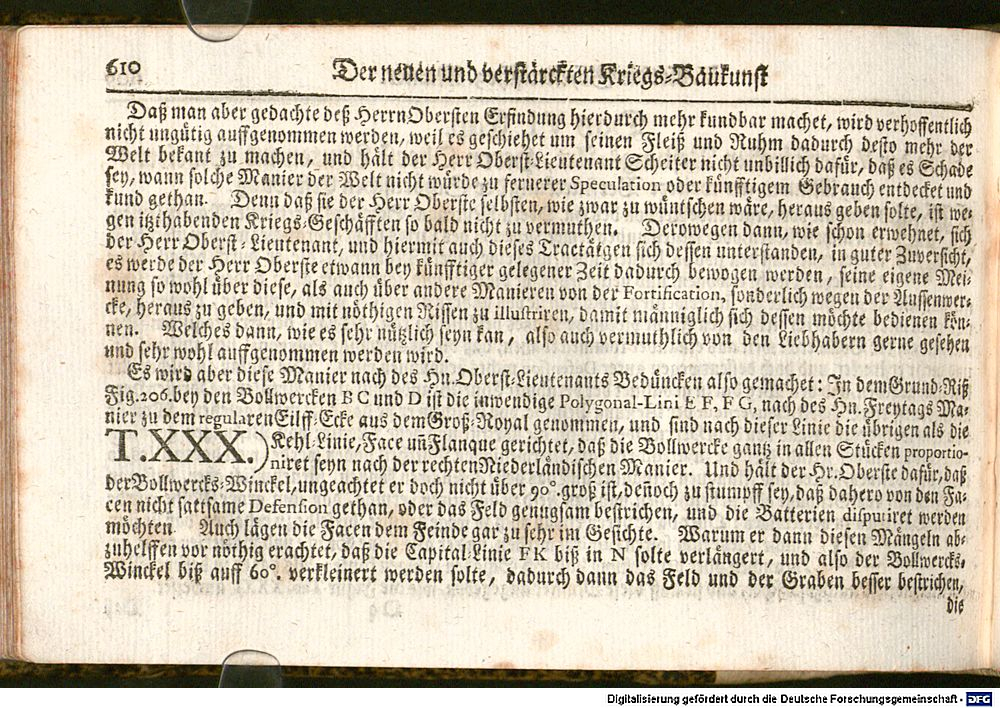 610
Der neuen und verstärckten Kriegs-Baukunst
Daß man aber gedachte deß Herrn Obersten Erfindung hierdurch mehr kundbar machet, wird verhoffentlich
nicht ungütig auffgenommen werden, weil es geschiehet um seinen Fleiß und Ruhm dadurch desto mehr der
Welt bekant zu machen, und hält der Herr Oberst-Lieutenant Scheiter nicht unbillich dafür, daß es Schade
sey, wann solche Manier der Welt nicht würde zu fernerer Speculation oder künfftigem Gebrauch entdecket und
kund gethan. Denn daß sie der Herr Oberste selbsten, wie zwar zu wüntschen wäre, heraus geben solte, ist we-
gen itzthabenden Kriegs-Geschäfften so bald nicht zu vermuthen. Derowegen dann, wie schon erwehnet, sich
der Herr Oberst-Lieutenant, und hiermit auch dieses Tractätgen sich dessen unterstanden, in guter Zuversicht,
es werde der Herr Oberste etwann bey künfftiger gelegener Zeit dadurch bewogen werden, seine eigene Mei-
nung so wohl über diese, als auch über andere Manieren von der Fortification, sonderlich wegen der Aussenwer-
cke, heraus zu geben, und mit nöthigen Rissen zu illustriren, damit männiglich sich dessen möchte bedienen kön-
nen. Welches dann, wie es sehr nützlich seyn kan, also auch vermuthlich von den Liebhabern gerne gesehen
und sehr wohl auffgenommen werden wird.
Es wird aber diese Manier nach des Hn. Oberst-Lieutenants Bedüncken also gemachet: In dem Grund-Riß
Fig. 206. bey den Bollwercken B C und D ist die inwendige Polygonal-Lini E F, F G, nach des Hn. Freytags Ma-
nier zu dem regularen Eilff-Ecke aus dem Groß-Royal genommen, und sind nach dieser Linie die übrigen als die
T.XXX.) Kehl-Linie, Face uñ Flanque gerichtet, daß die Bollwercke gantz in allen Stücken proportio-
niret seyn nach der rechten Niederländischen Manier. Und hält der Hr. Oberste dafür, daß
der Bollwercks-Winckel, ungeachtet er doch nicht über 90°. groß ist, deñoch zu stumpff sey, daß dahero von den Fa-
cen nicht sattsame Defension gethan, oder das Feld genugsam bestrichen, und die Batterien disputiret werden
möchten Auch lägen die Facen dem Feinde gar zu sehr im Gesichte. Warum er dann diesen Mängeln ab-
zuhelffen vor nöthig erachtet, daß die Capital-Linie FK biß in N solte verlängert, und also der Bollwercks-
Winckel biß auff 60°. verkleinert werden solte, dadurch dann das Feld und der Graben besser bestrichen,
die
Digitalisierung gefördert durch die Deutsche Forschungsgemeinschaft - DFG